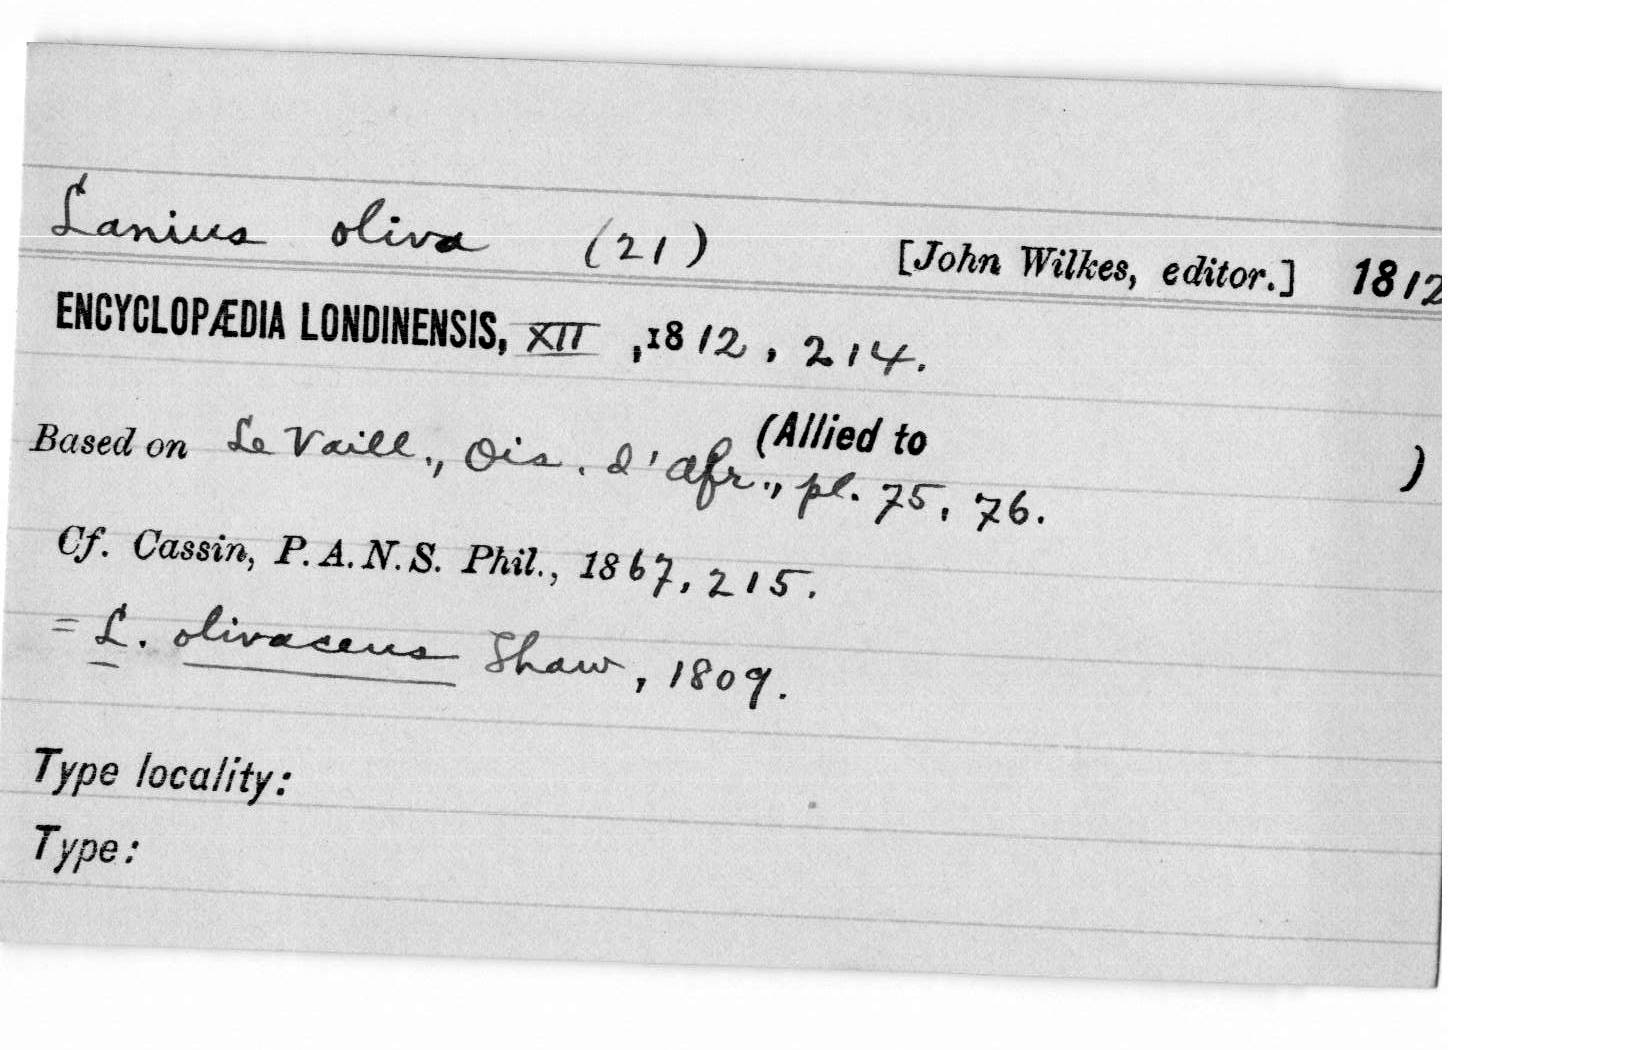 Lanius oliva (21) [John Wilkes, editor.] 1812
ENCYCLOPÆDIA LONDINENSIS, XII, 1812, 214.
(Allied to )
Based on Le Vaill., Ois. d'Afr., pl. 75, 76.
Cf. Cassin, P.A.N.S. Phil., 1867, 215.
= L. olivaceus Shaw, 1809.
Type locality:
Type: